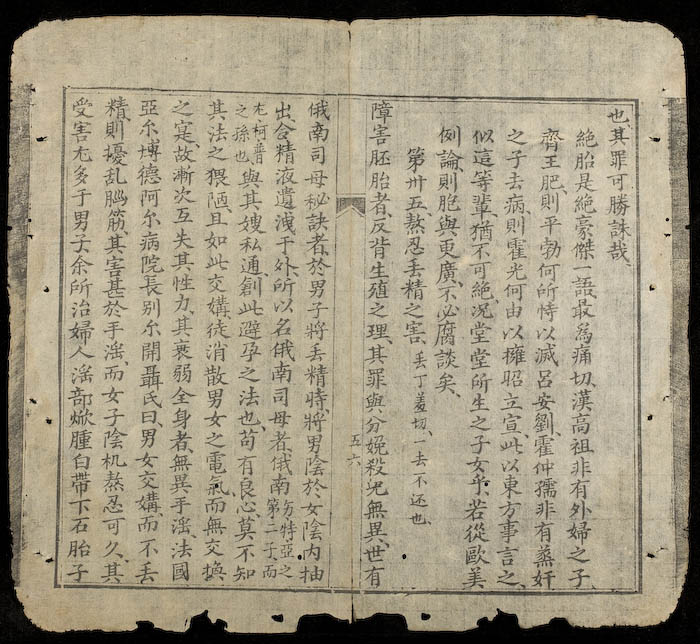 也、其罪可勝誅哉、
絶胎是絶豪傑一語、最為痛切、漢高祖非有外婦之子
齊王肥、則平勃何所恃以滅呂安劉、霍仲孺非有蒸奸
之子去病、則霍光何由以擁昭立宣、此以東方事言之、
似這等輩、猶不可絶、况堂堂所生之子女乎、若從歐美
例論、則胞與更廣、不必腐談矣、
第卅五、熬忍丢精之害、丢丁羞切、一去不还也、
障害胚胎者、反背生殖之理、其罪與分娩殺児無異、世有
五六
俄南司母秘訣者、於男子將丢精時、將男陰於女陰内抽
出、令精液遺洩于外、所以名俄南司母者、俄南夯特亞之第二子、而
尤柯普之孫也、與其嫂私通、創此避孕之法也、苟有良心、莫不知
其法之猥陋、且如此交媾、徒消散男女之電氣、而無交換
之寔、故漸次互失其性力、其衰弱全身者、無異手淫、法國
亞尓博德阿尓病院長别尓開聶氏曰、男女交媾、而不丢
精、則擾乱腦筋、其害甚於手淫、而女子陰机熬忍可久、其
受害尢多于男子、余所治婦人淫部焮腫白帶下石胎子